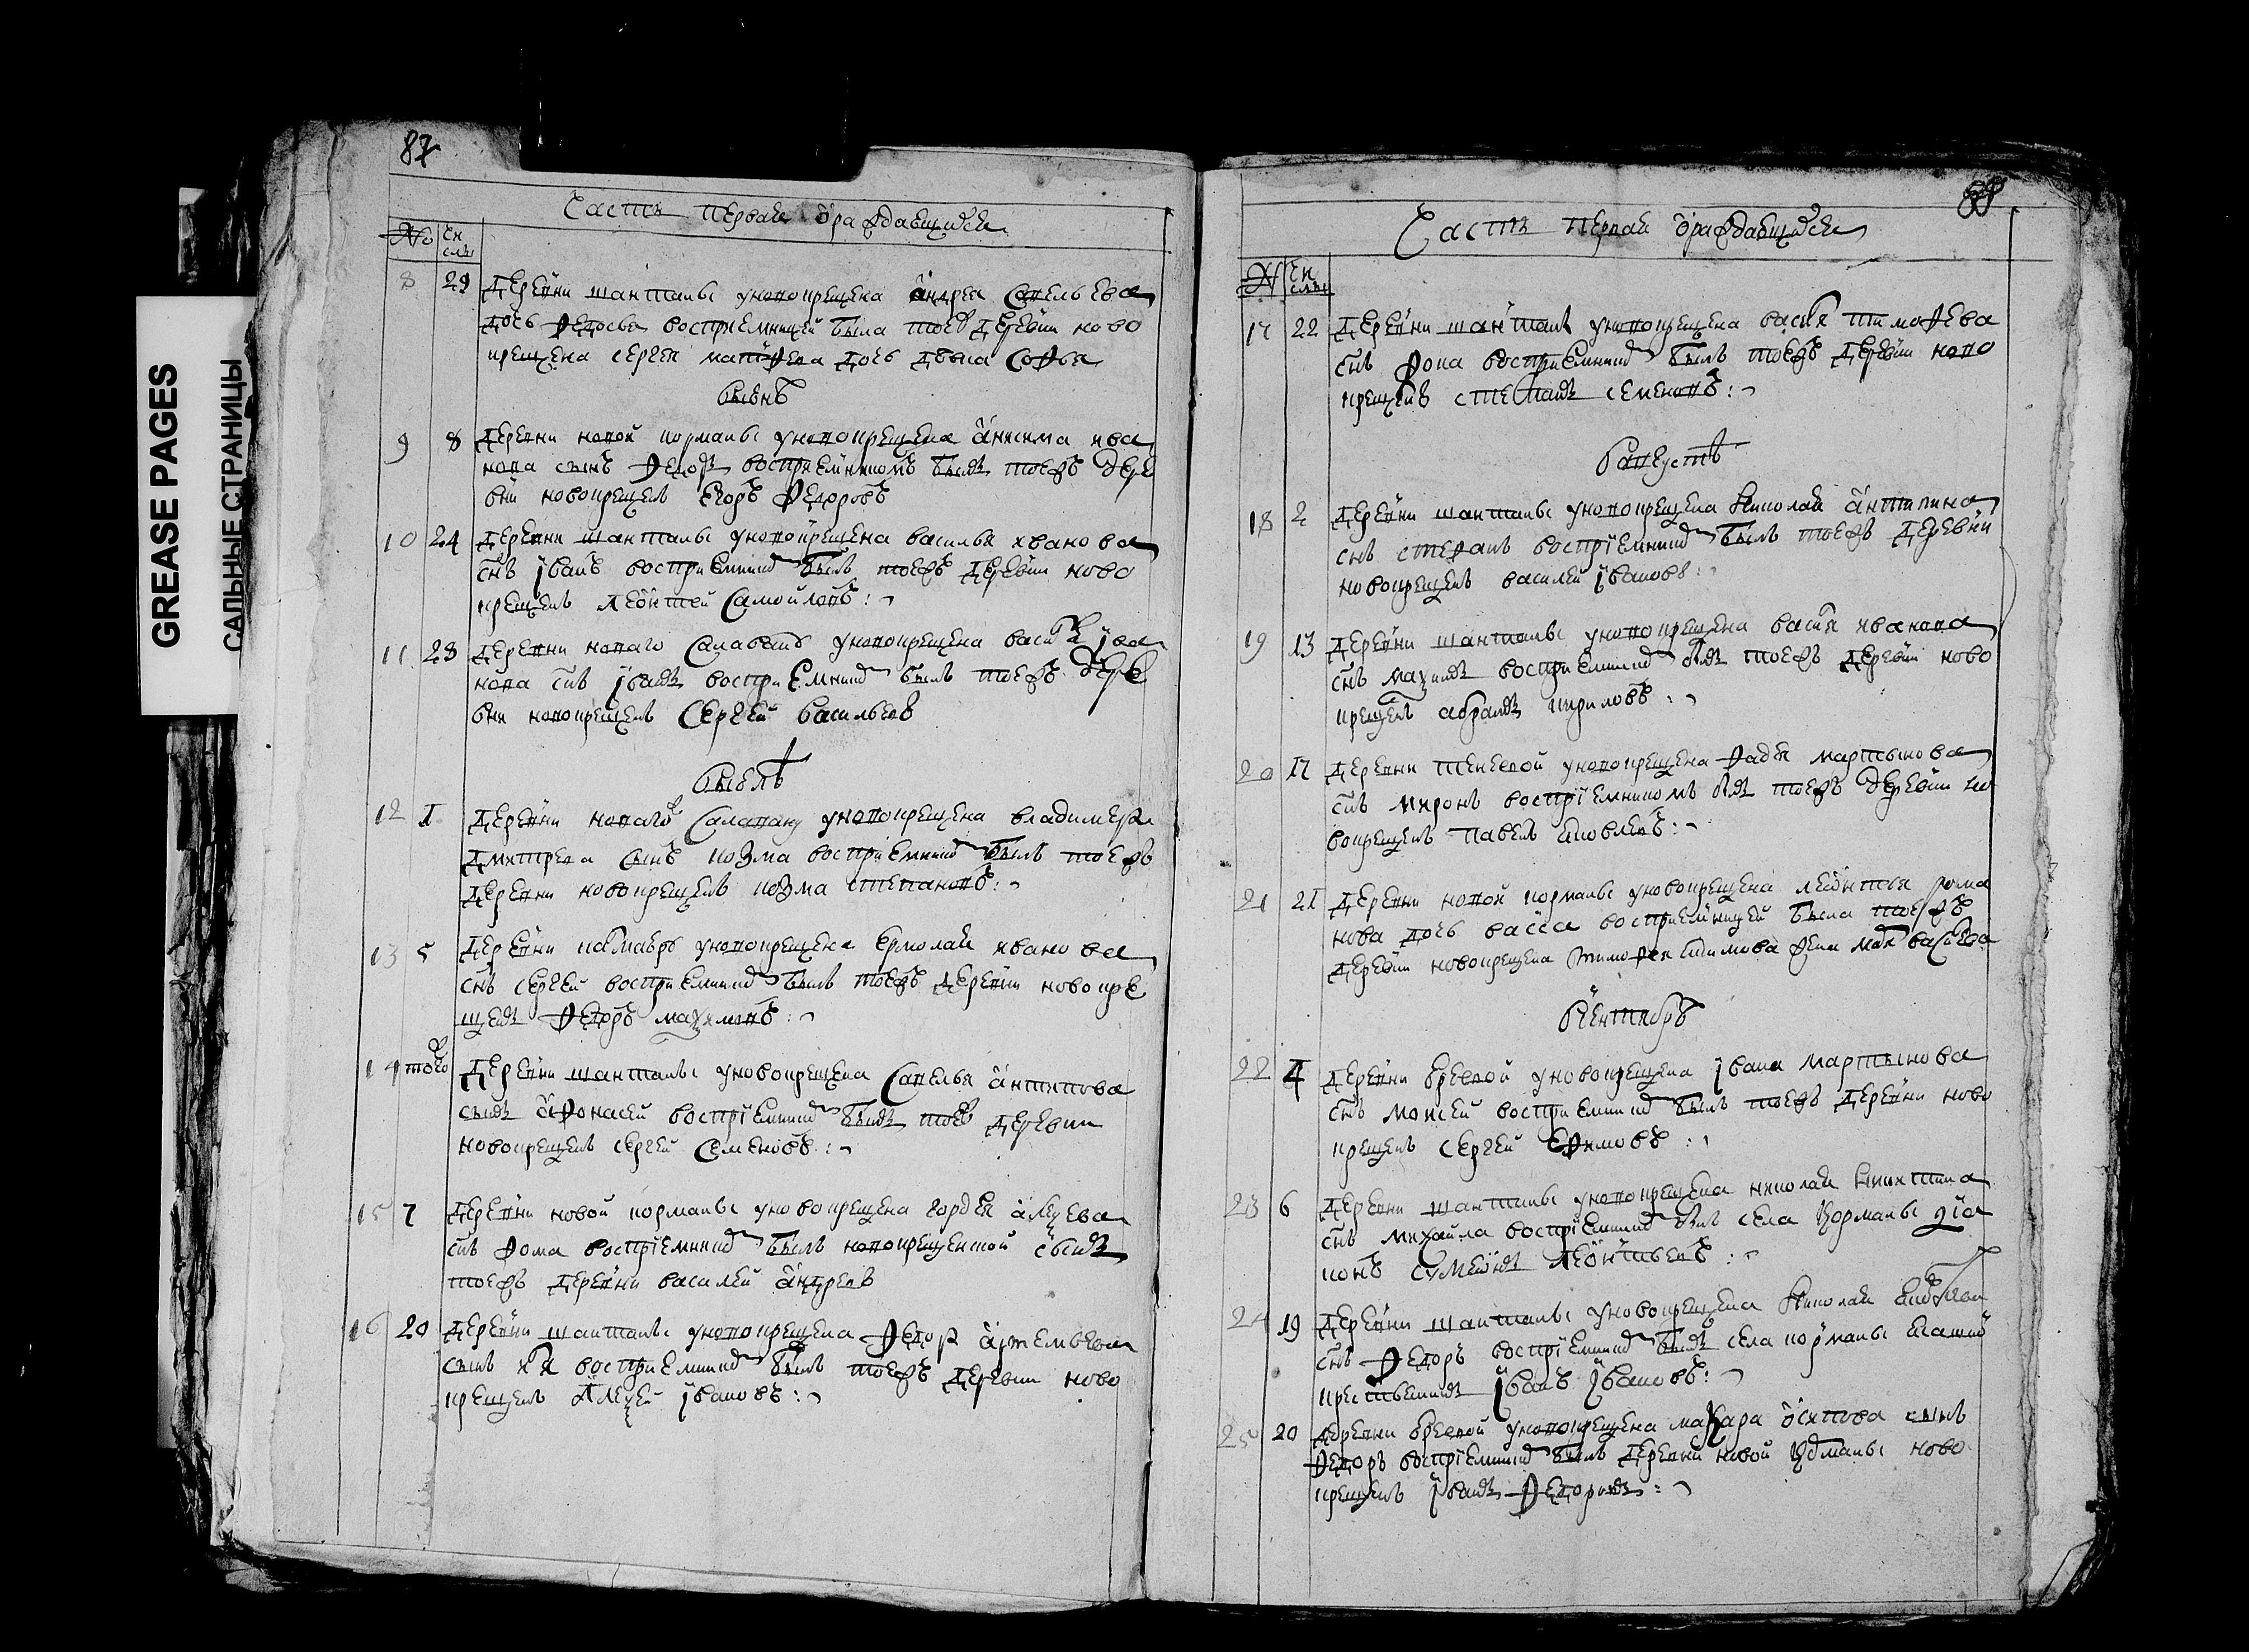 GREASE PAGES
САЛЬНЫЕ СТРАНИЦЫ
87
Часть первая ѡраждающихся
№ числы
8 29 Деревни шанталы уновокрещена андрея савельева
дочь федосья восприемницей была тоежъ деревни ново
крещена сергея матфеева дочь девка софья
Июнь
9 8 Деревни новой кормалы уновокрещена анисима ива
нова сынъ федоръ восприемникомъ былъ тоежъ дере
вни новокрещенъ егоръ федоровъ
10 24 Деревни шанталы уновокрещена василья иванова
снъ іванъ восприемникъ былъ тоежъ деревни ново
крещенъ леонтей самойловъ
11 28 деревни новаго уновокрещена василя іва
нова снъ іванъ восприемникъ былъ тоежъ дере
вни новокрещенъ сергей васильевъ
Июль
12 1 Деревни новаго уновокрещена владимера
дмитрева сынъ козма восприемникъ былъ тоежъ
деревни новокрещенъ козма степановъ
13 5 Деревни уновокрещена ермолая иванова
снъ сергей восприемникъ былъ тоежъ деревни новокре
щенъ федоръ маѯимовъ
14 того Деревни шанталы уновокрещена савелья антипова
сынъ афонасей восприемникъ былъ тоежъ деревни
новокрещенъ сергей семеновъ
15 7 Деревни новой кормалы уновокрещена гордея алеѯева
снъ фома восприемникъ былъ новокрещенской сынъ
тоежъ деревни василей андреевъ
16 20 деревни шанталы уновокрещена федора артемьева
сынъ илья восприемникъ былъ тоежъ деревни ново
крещенъ алеѯей івановъ
Часть первая ѡраждающихся
№ числы
17 22 Деревни шанталы уновокрещена василя тимофева
снъ фока восприемникъ былъ тоежъ деревни ново
крещенъ степанъ семеновъ
Августъ
18 2 Деревни шанталы уновокрещена николая антипина
снъ степанъ восприемникъ былъ тоежъ деревни
новокрещенъ василей івановъ
19 13 Деревни шанталы уновокрещена василя иванова
снъ маѯимъ восприемникъ былъ тоежъ деревни ново
крещенъ абрамъ кириловъ
20 17 Деревни уновокрещена фадея мартынова
снъ миронъ восприемникомъ былъ тоежъ деревни но
вокрещенъ павелъ яковлевъ
21 21 Деревни новой кормалы уновокрещена леонтья рома
нова дочь васса восприемницей была тоежъ
деревни новокрещена тимофея жена васильева
Сентябрь
22 4 Деревни уновокрещена івана мартынова
снъ моисей восприемникъ былъ тоежъ деревни ново
крещенъ сергей ефимовъ
23 6 Деревни шанталы уновокрещена николая никитина
снъ михайла восприемникъ былъ села кормалы діа
конъ сѵмеонъ леонтьевъ
24 19 Деревни шанталы уновокрещена николая
снъ федоръ восприемникъ былъ села кормалы ясашной
крестьянинъ іванъ івановъ
25 20 деревни уновокрещена макара осипова сынъ
федоръ восприемникъ былъ деревни новой кормалы ново
крещенъ іванъ федоровъ